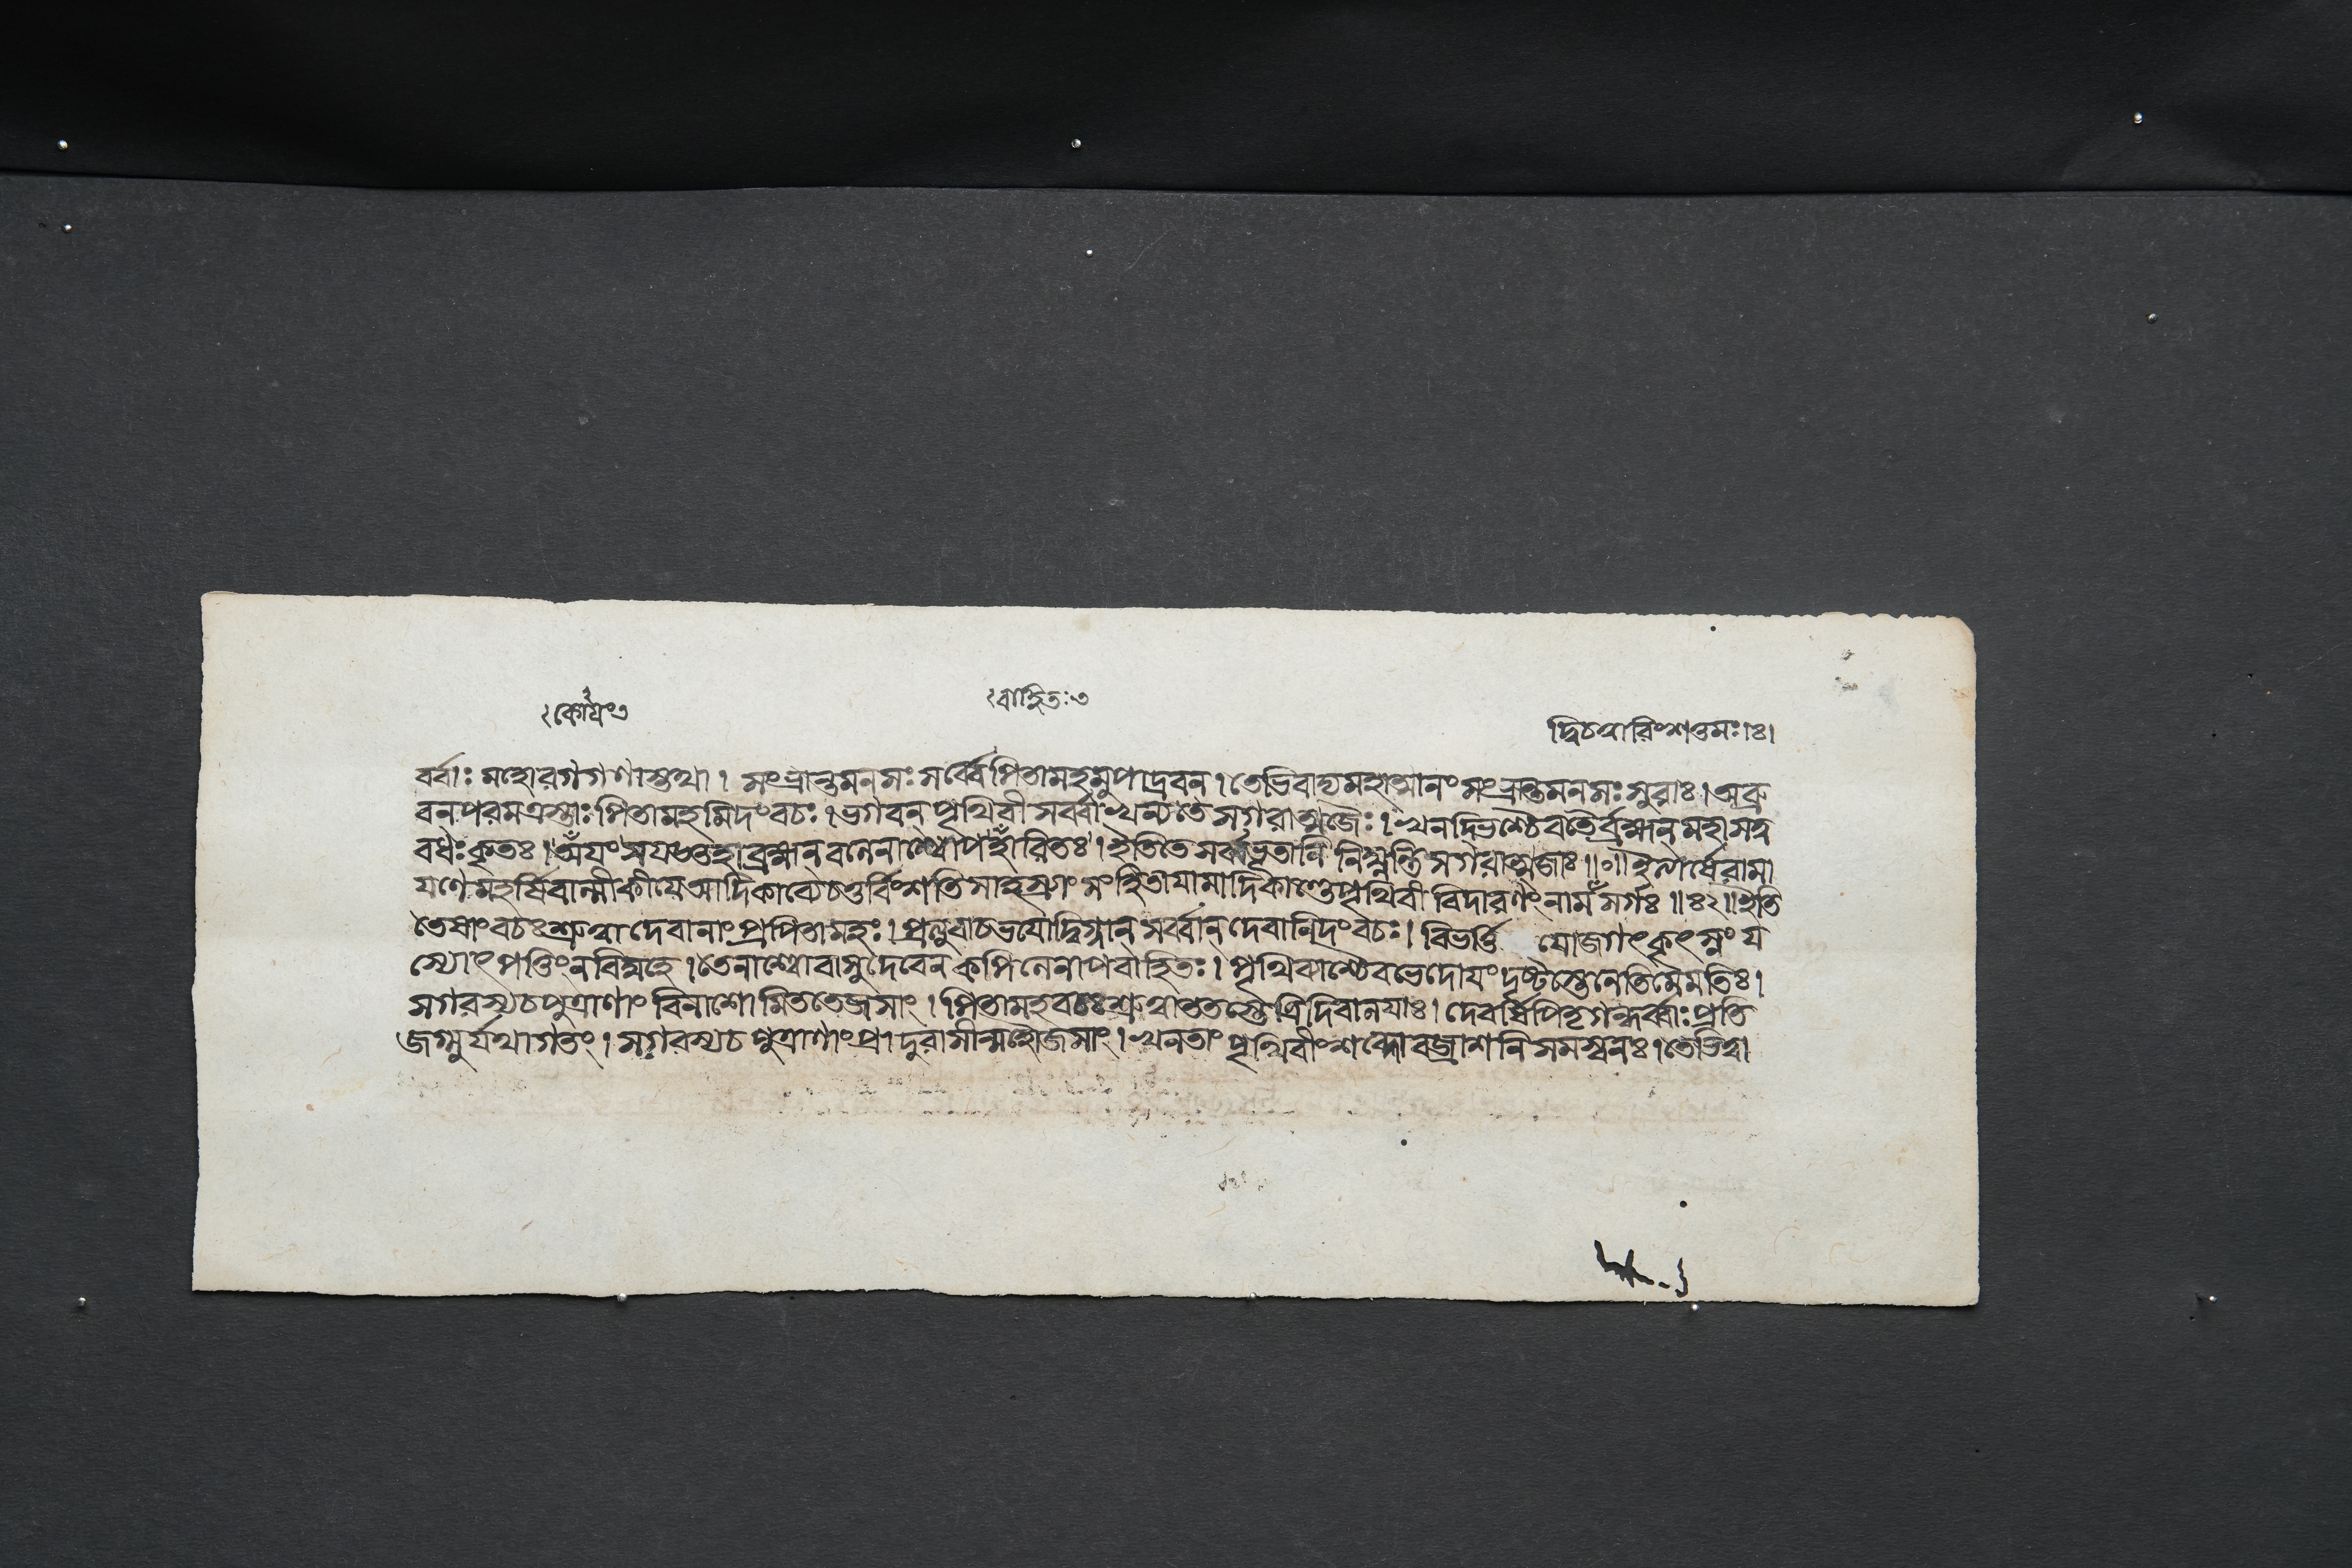 ২কোয়ং৩
২বাহিতঃ৩
দ্বিচত্বারিংশত্তমঃ।ঃ।
র্বর্বাঃ মহোরগগণাস্তথা। সংভ্রান্তমনসঃ সর্ব্বে পিতামহমুপাদ্রবন্। তেভিবাদ্যমহাত্মানং সংভ্রান্তমনসঃ সুরাঃ। অব্রু
বন্পরমত্রস্তাঃ পিতামহমিদংবচঃ। ভগবন্ পৃথিবী সর্ব্বা খন্যতে সগরাত্মজৈঃ। খনদ্ভিশ্চৈবতৈর্ব্রহ্মন্ মহাসত্ব
বধঃ কৃতঃ। অয়ং যজ্ঞহা ব্রহ্মন্ বনেনাশ্বোপহারিতঃ। ইতিতে সর্ব্বভূতানি নিঘ্নন্তি সগরাত্মজাঃ॥০॥ ইত্যার্ষেরামা
যণে মহর্ষিবাল্মীকীয়ে আদিকাব্যে চতুর্বিংশতিসাহস্র্যাং সংহিতাযামাদিকাণ্ডে পৃথিবী বিদারণং নাম সর্গঃ॥৪২॥ ইতি
তেষাংবচঃ শ্রুত্বা দেবানাং প্রপিতামহঃ। প্রত্যুবাচ ভযোদ্বিগ্নান্ সর্ব্বান্ দেবানিদংবচঃ। বিভর্ত্তি যোজগৎ কৃৎস্নং য
স্যোৎপত্তিং নবিদ্মহে। তেনাশ্বো বাসুদেবেন কপিলেনাপবাহিতঃ। পৃথিব্যাশ্চৈবভেদোযং দৃষ্টস্তেনেতিমেমতিঃ।
সগরস্যচ পুত্রাণাং বিনাশোমিততেজসাং। পিতামহবচঃ শ্রুত্বা ততস্তে ত্রিদিবালযাঃ। দেবর্ষিপিতৃগন্ধর্ব্বাঃ প্রতি
জগ্মুর্যথাগতং। সগরস্যচ পুত্রাণাং প্রাদুরাসীন্মহৌজসাং। খনতাং পৃথিবীং শব্দো বজ্রাশনিসমস্বনঃ। তেভিত্বা